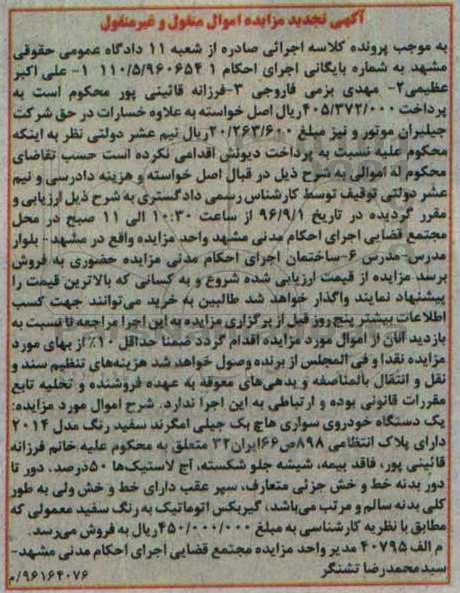 آگهی تجدید مزایده اموال منقول و غیرمنقول
به موجب پرونده کلاسه اجرائی صادره از شعبه ۱۱ دادگاه عمومی حقوقی
مشهد به شماره بایگانی اجرای احکام ۱ ۱۱۰/۵/۹۶۰۶۵۴ ۱- علی اکبر
عظیمی۲- مهدی بزمی فاروجی ۳-فرزانه قائینی پور محکوم است به
پرداخت ۴۰۵/۳۷۲/۰۰۰ریال اصل خواسته به علاوه خسارات در حق شرکت
جیلیران موتور و نیز مبلغ ۲۰/۲۶۳/۶۰۰ریال نیم عشر دولتی نظر به اینکه
محکوم علیه نسبت به پرداخت دیونش اقدامی نکرده است حسب تقاضای
محکوم له اموالی به شرح ذیل در قبال اصل خواسته و هزینه دادرسی و نیم
عشر دولتی توقیف توسط کارشناس رسمی دادگستری به شرح ذیل ارزیابی و
مقرر گردیده در تاریخ ۹۶/۹/۱ از ساعت ۱۰:۳۰ الی ۱۱ صبح در محل
مجتمع قضایی اجرای احکام مدنی مشهد واحد مزایده واقع در مشهد- بلوار
مدرس-مدرس ۶-ساختمان اجرای احکام مدنی مزایده حضوری به فروش
برسد مزایده از قیمت ارزیابی شده شروع و به کسانی که بالاترین قیمت را
پیشنهاد نمایند واگذار خواهد شد طالبین به خرید می‌توانند جهت کسب
اطلاعات بیشتر پنج روز قبل از برگزاری مزایده به این اجرا مراجعه تا نسبت به
بازدید آنان از اموال مورد مزایده اقدام گردد ضمنا حداقل ۱۰٪ از بهای مورد
مزایده نقدا و فی المجلس از برنده وصول خواهد شد هزینه‌های تنظیم سند و
نقل و انتقال بالمناصفه و بدهی‌های معوقه به عهده فروشنده و تخلیه تابع
مقررات قانونی بوده و ارتباطی به این اجرا ندارد. شرح اموال مورد مزایده:
یک دستگاه خودروی سواری هاچ بک جیلی امگرند سفید رنگ مدل ۲۰۱۴
دارای پلاک انتظامی ۸۹۸ص۶۶ایران۳۲ متعلق به محکوم علیه خانم فرزانه
قائینی پور، فاقد بیمه، شیشه جلو شکسته، آج لاستیک‌ها ۵۰درصد، دور تا
دور بدنه خط و خش جزئی متعارف، سپر عقب دارای خط و خش ولی به طور
کلی بدنه سالم و مرتب می‌باشد، گیربکس اتوماتیک به رنگ سفید معمولی که
مطابق با نظریه کارشناسی به مبلغ ۴۵۰/۰۰۰/۰۰۰ریال به فروش می‌رسد.
م الف ۴۰۷۹۵ مدیر واحد مزایده مجتمع قضایی اجرای احکام مدنی مشهد-
سیدمحمدرضا تشنگر
۹۶۱۶۴۰۷۶/م